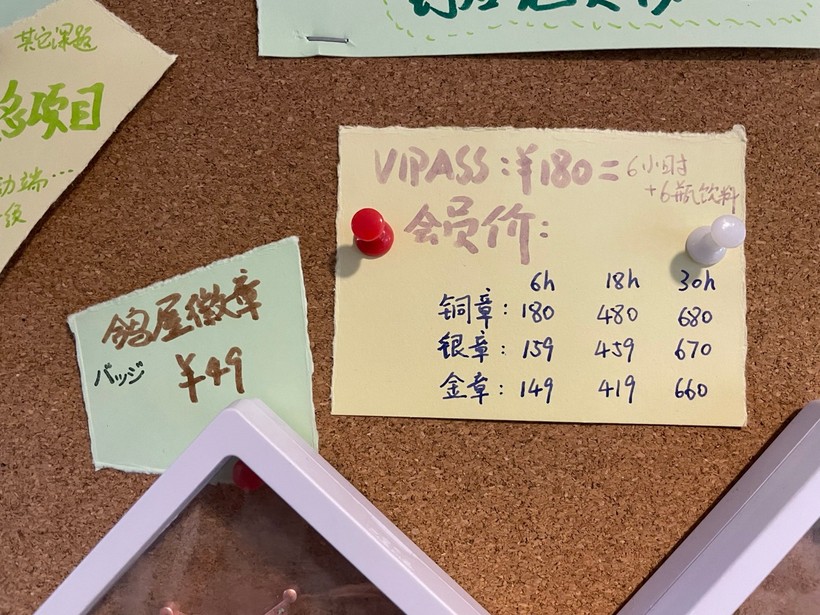 其它课题
项目
动端…
VIPASS：¥180＝6小时
+6瓶饮料
会员价：
6h 18h 30h
铜章：180 480 680
银章：159 459 670
金章：149 419 660
鸽屋徽章
バッジ ¥49